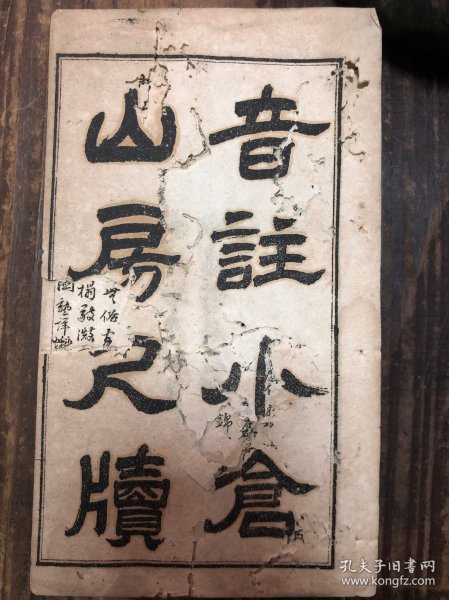 音註小倉
山房尺牘
孔夫子旧书网
www.kongfz.com